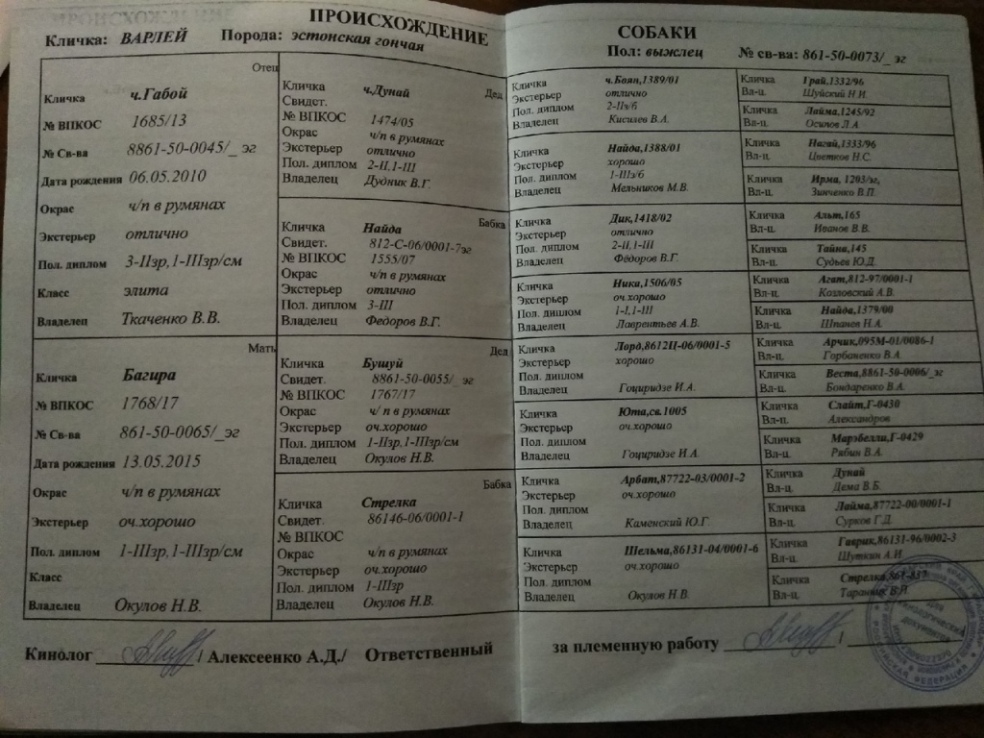 ПРОИСХОЖДЕНИЕ
Кличка: ВАРЛЕЙ Порода: эстонская гончая
Отец
Кличка ч.Габой
№ ВПКОС 1685/13
№ Св-ва 8861-50-0045/_ эг
Дата рождения 06.05.2010
Окрас ч/п в румянах
Экстерьер отлично
Пол. диплом 3-IIзр,1-IIIзр/см
Класс элита
Владелец Ткаченко В.В.
Мать
Кличка Багира
№ ВПКОС 1768/17
№ Св-ва 861-50-0065/_эг
Дата рождения 13.05.2015
Окрас ч/п в румянах
Экстерьер оч.хорошо
Пол. диплом 1-IIIзр,1-IIIзр/см
Класс
Владелец Окулов Н.В.
Дед
Кличка ч.Дунай
Свидет.
№ ВПКОС 1474/05
Окрас ч/п в румянах
Экстерьер отлично
Пол. диплом 2-II,1-III
Владелец Дудник В.Г.
Бабка
Кличка Найда
Свидет. 812-С-06/0001-7эг
№ ВПКОС 1555/07
Окрас ч/п в румянах
Экстерьер отлично
Пол. диплом 3-III
Владелец Федоров В.Г.
Дед
Кличка Бушуй
Свидет. 8861-50-0055/_ эг
№ ВПКОС 1767/17
Окрас ч/п в румянах
Экстерьер оч.хорошо
Пол. диплом 1-IIзр,1-IIIзр/см
Владелец Окулов Н.В.
Бабка
Кличка Стрелка
Свидет. 86146-06/0001-1
№ ВПКОС
Окрас ч/п в румянах
Экстерьер оч.хорошо
Пол. диплом 1-IIIзр
Владелец Окулов Н.В.
Кинолог / Алексеенко А.Д./ Ответственный
СОБАКИ
Пол: выжлец № св-ва: 861-50-0073/_ эг
Кличка ч.Боян,1389/01
Экстерьер отлично
Пол. диплом 2-IIз/б
Владелец Киселев В.А.
Кличка Найда,1388/01
Экстерьер хорошо
Пол. диплом 1-IIIз/б
Владелец Мельников М.В.
Кличка Дик,1418/02
Экстерьер отлично
Пол. диплом 2-II,1-III
Владелец Фёдоров В.Г.
Кличка Ника,1506/05
Экстерьер оч.хорошо
Пол. диплом 1-I,1-III
Владелец Лаврентьев А.В.
Кличка Лорд,8612Ц-06/0001-5
Экстерьер хорошо
Пол. диплом
Владелец Гоциридзе И.А.
Кличка Юта,св.1005
Экстерьер оч.хорошо
Пол. диплом
Владелец Гоциридзе И.А.
Кличка Арбат,87722-03/0001-2
Экстерьер оч.хорошо
Пол. диплом
Владелец Каменский Ю.Г.
Кличка Шельма,86131-04/0001-6
Экстерьер оч.хорошо
Пол. диплом
Владелец Окулов Н.В.
Кличка Грай,1332/96
Вл-ц. Шуйский Н.Н.
Кличка Лайма,1245/92
Вл-ц. Осипов Л.А.
Кличка Нагай,1333/96
Вл-ц. Цветков Н.С.
Кличка Ирма, 1293/эг,
Вл-ц. Зинченко В.П.
Кличка Альт,165
Вл-ц. Иванов В.В.
Кличка Тайна,145
Вл-ц. Судьев Ю.Д.
Кличка Агат,812-97/0001-1
Вл-ц. Козловский А.В.
Кличка Найда,1379/00
Вл-ц. Шпанев Н.А.
Кличка Арчик,095М-01/0086-1
Вл-ц. Горбаненко В.А.
Кличка Веста,8861-50-0006/_эг
Вл-ц. Бондаренко В.А.
Кличка Слайт,Г-0430
Вл-ц. Александров
Кличка Марэбелли,Г-0429
Вл-ц. Рябин В.А.
Кличка Дунай
Вл-ц. Дема В.Б.
Кличка Лайма,87722-00/0001-1
Вл-ц. Сурков Г.Д.
Кличка Гаврик,86131-96/0002-3
Вл-ц. Шуткин А.И.
Кличка Стрелка
Вл-ц.
за племенную работу / /